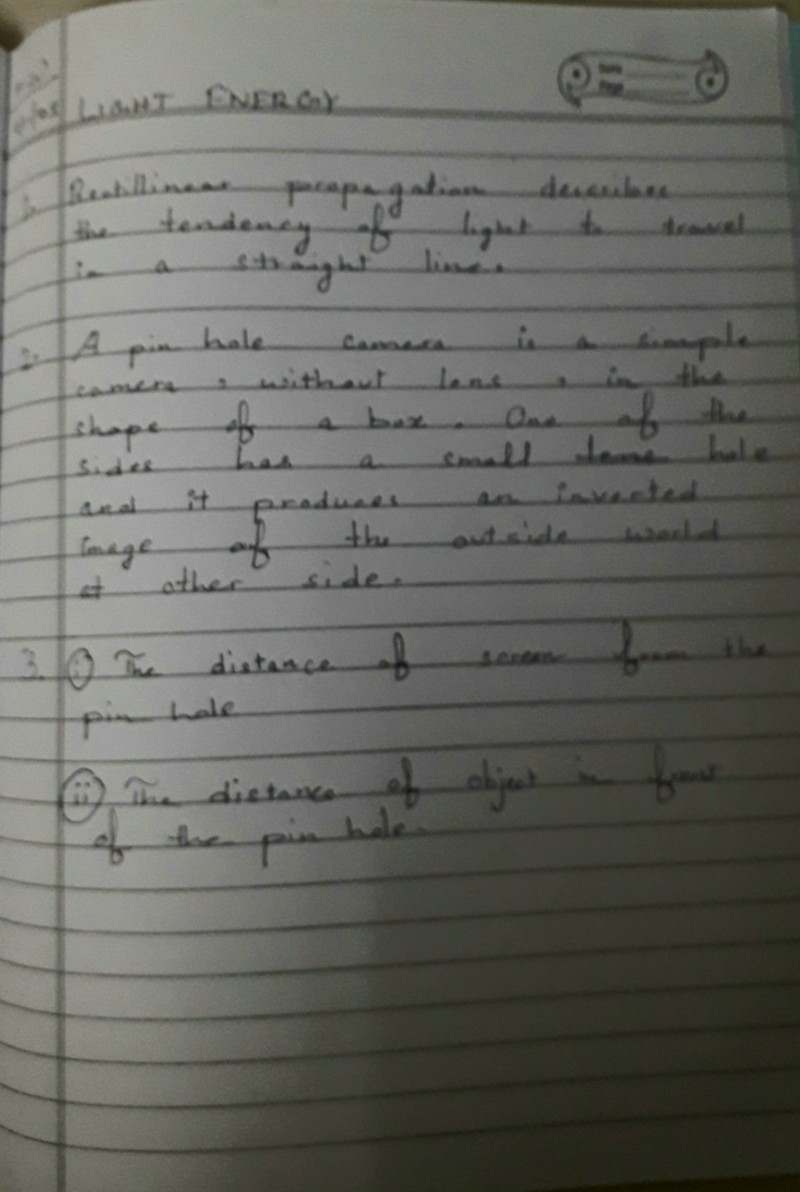 LIGHT ENERGY
1. Rectillinear propagation describes
the tendency of light to travel
in a straight line.
2. A pin hole camera is a simple
camera, without lens, in the
shape of a box. One of the
sides has a small hole
and it produces an inverted
image of the outside world
at other side.
3. i) The distance of screen from the
pin hole
ii) The distance of object in front
of the pin hole.